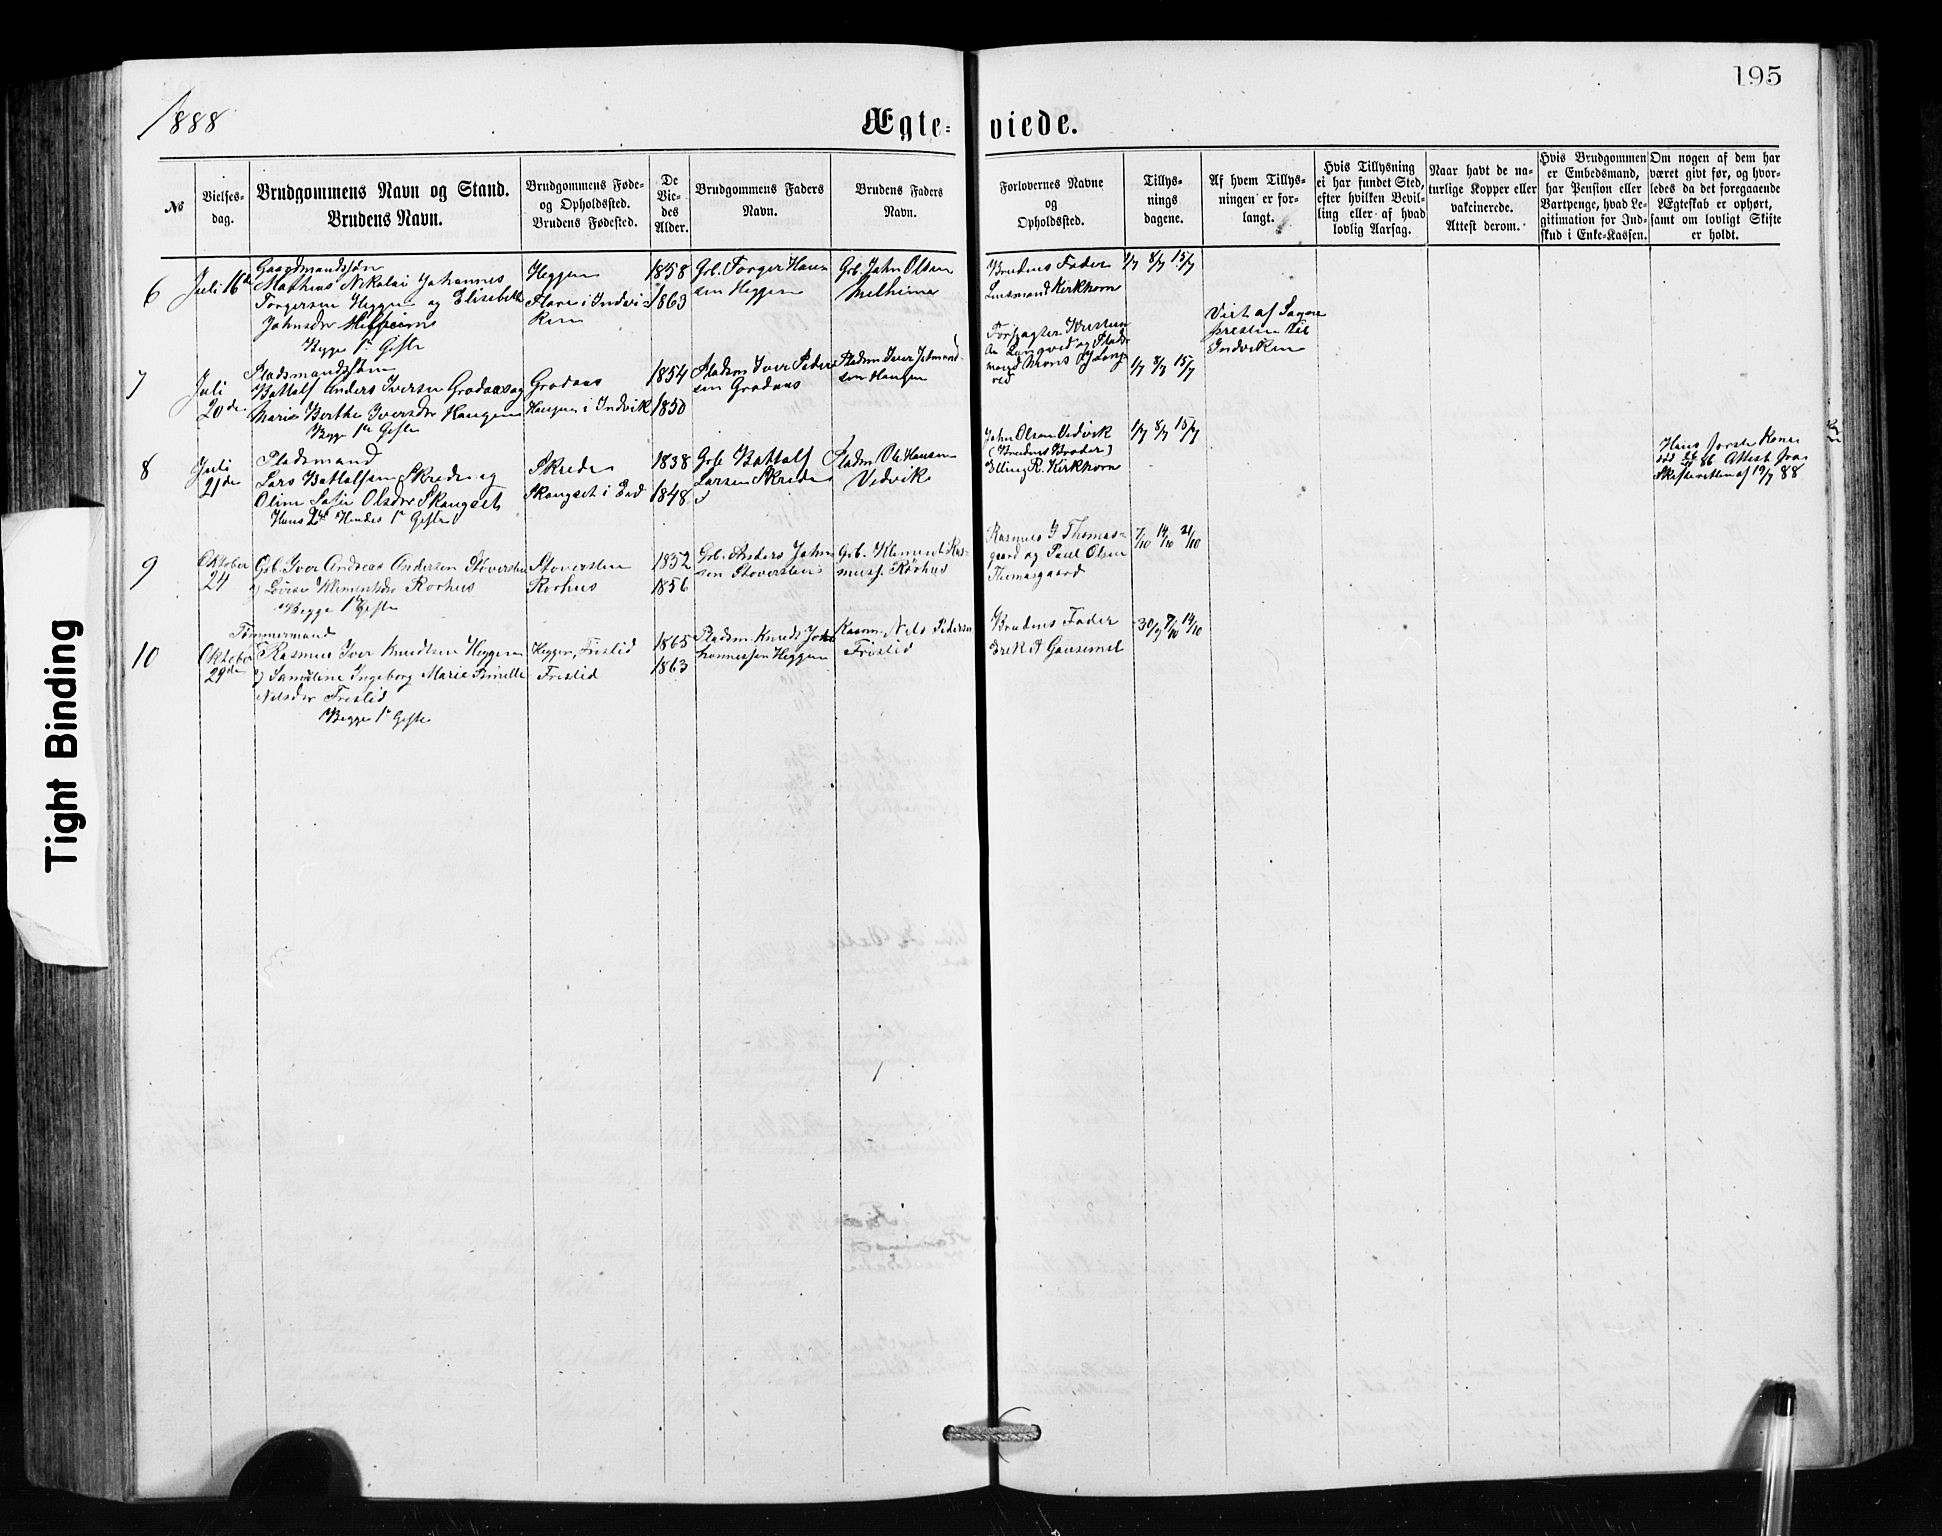 195
1888
Ægte-viede.
№
Vielses-
dag.
Brudgommens Navn og Stand.
Brudens Navn.
Brudgommens Føde-
og Opholdssted.
Brudens Fødested.
De
Vie-
des
Alder.
Brudgommens Faders
Navn.
Brudens Faders
Navn.
Forlovernes Navne
og
Opholdssted.
Tillys-
nings
dagene.
Af hvem Tillys-
ningen er for-
langt.
Hvis Tillysning
ei har fundet Sted,
efter hvilken Bevil-
ling eller af hvad
lovlig Aarsag.
Naar havt de na-
turlige Kopper eller
vakcinerede.
Attest derom.
Hvis Brudgommen
er Embedsmand,
har Pension eller
Vartpenge, hvad Le-
gitimation for Ind-
skud i Enke-Kassen.
Om nogen af dem har
været givt før, og hvor-
ledes da det foregaaende
Ægteskab er ophørt,
samt om lovligt Skifte
er holdt.
6
Juli 16de
Gaardmandssøn
Mathias Nikolai Johannes
Torgersen Heggen og Elisebeth
Johnsdr
Begge 1ste Gifte
Heggen
i Indvi-
ken
1858
1863
Grb. Torger Han-
sen Heggen
Grb. John Olsen
Melheim
Brudens Fader
Lensmand Kirkhorn
1/7 8/7 15/7
Viet af Sogne
presten til
Indviken
7
Juli
20de
Pladsmandssøn
Battolf Anders Iversen Grodaas og
Marie Berthe Iversdr Haugen
Begge 1ste Gifte
Grodaas
Haugen i Indvik
1854
1850
Pladsm Iver Peder-
sen Grodaas
Pladsm Iver
sen Haugen
Forpagter Kristen
Langved og Plads-
mand Mons Lang-
ved
1/7 8/7 15/7
8
Juli
21de
Pladsmand
Lars Battolfsen Skrede og
Oline Sofie Olsdr Skaugset
Hans 2det Hendes 1ste Gifte
Skrede
Skaugset i Eid
1838
1848
Grb Battolf
Larsen Skrede
Pladsm Ole Hansen
Vedvik
John Olsen Vedvik
(Brudens Broder)
Elling R. Kirkhorn
1/7 8/7 15/7
Hans første Kone
død 86 Attest fra
Skifteretten af 19/7 88
9
Oktober
24
Grb. Iver Andreas Andersen Støversten
og Lovise Klementsdr Rørhus
Begge 1ste Gifte
Støversten
Rørhus
1852
1856
Grb. Anders John-
sen Støversten
Grb. Klement Ras-
muss. Rørhus
Rasmus J Thomas-
gaard og Paul Olsen
Thomasgaard
7/10 14/10 21/10
10
Oktober
29de
Tømmermand
Rasmus Iver Knudtsen Heggen
og Samueline Ingeborg Marie
Nilsdr Fristid
Begge 1ste Gifte
Heggen, Fristid
Fristid
1865
1863
Pladsm. Knud Jo-
hannessen Heggen
Nils Pedersen
Fristid
Brudens Fader
Erik A Gausemel
30/9 7/10 14/10
Tight Binding